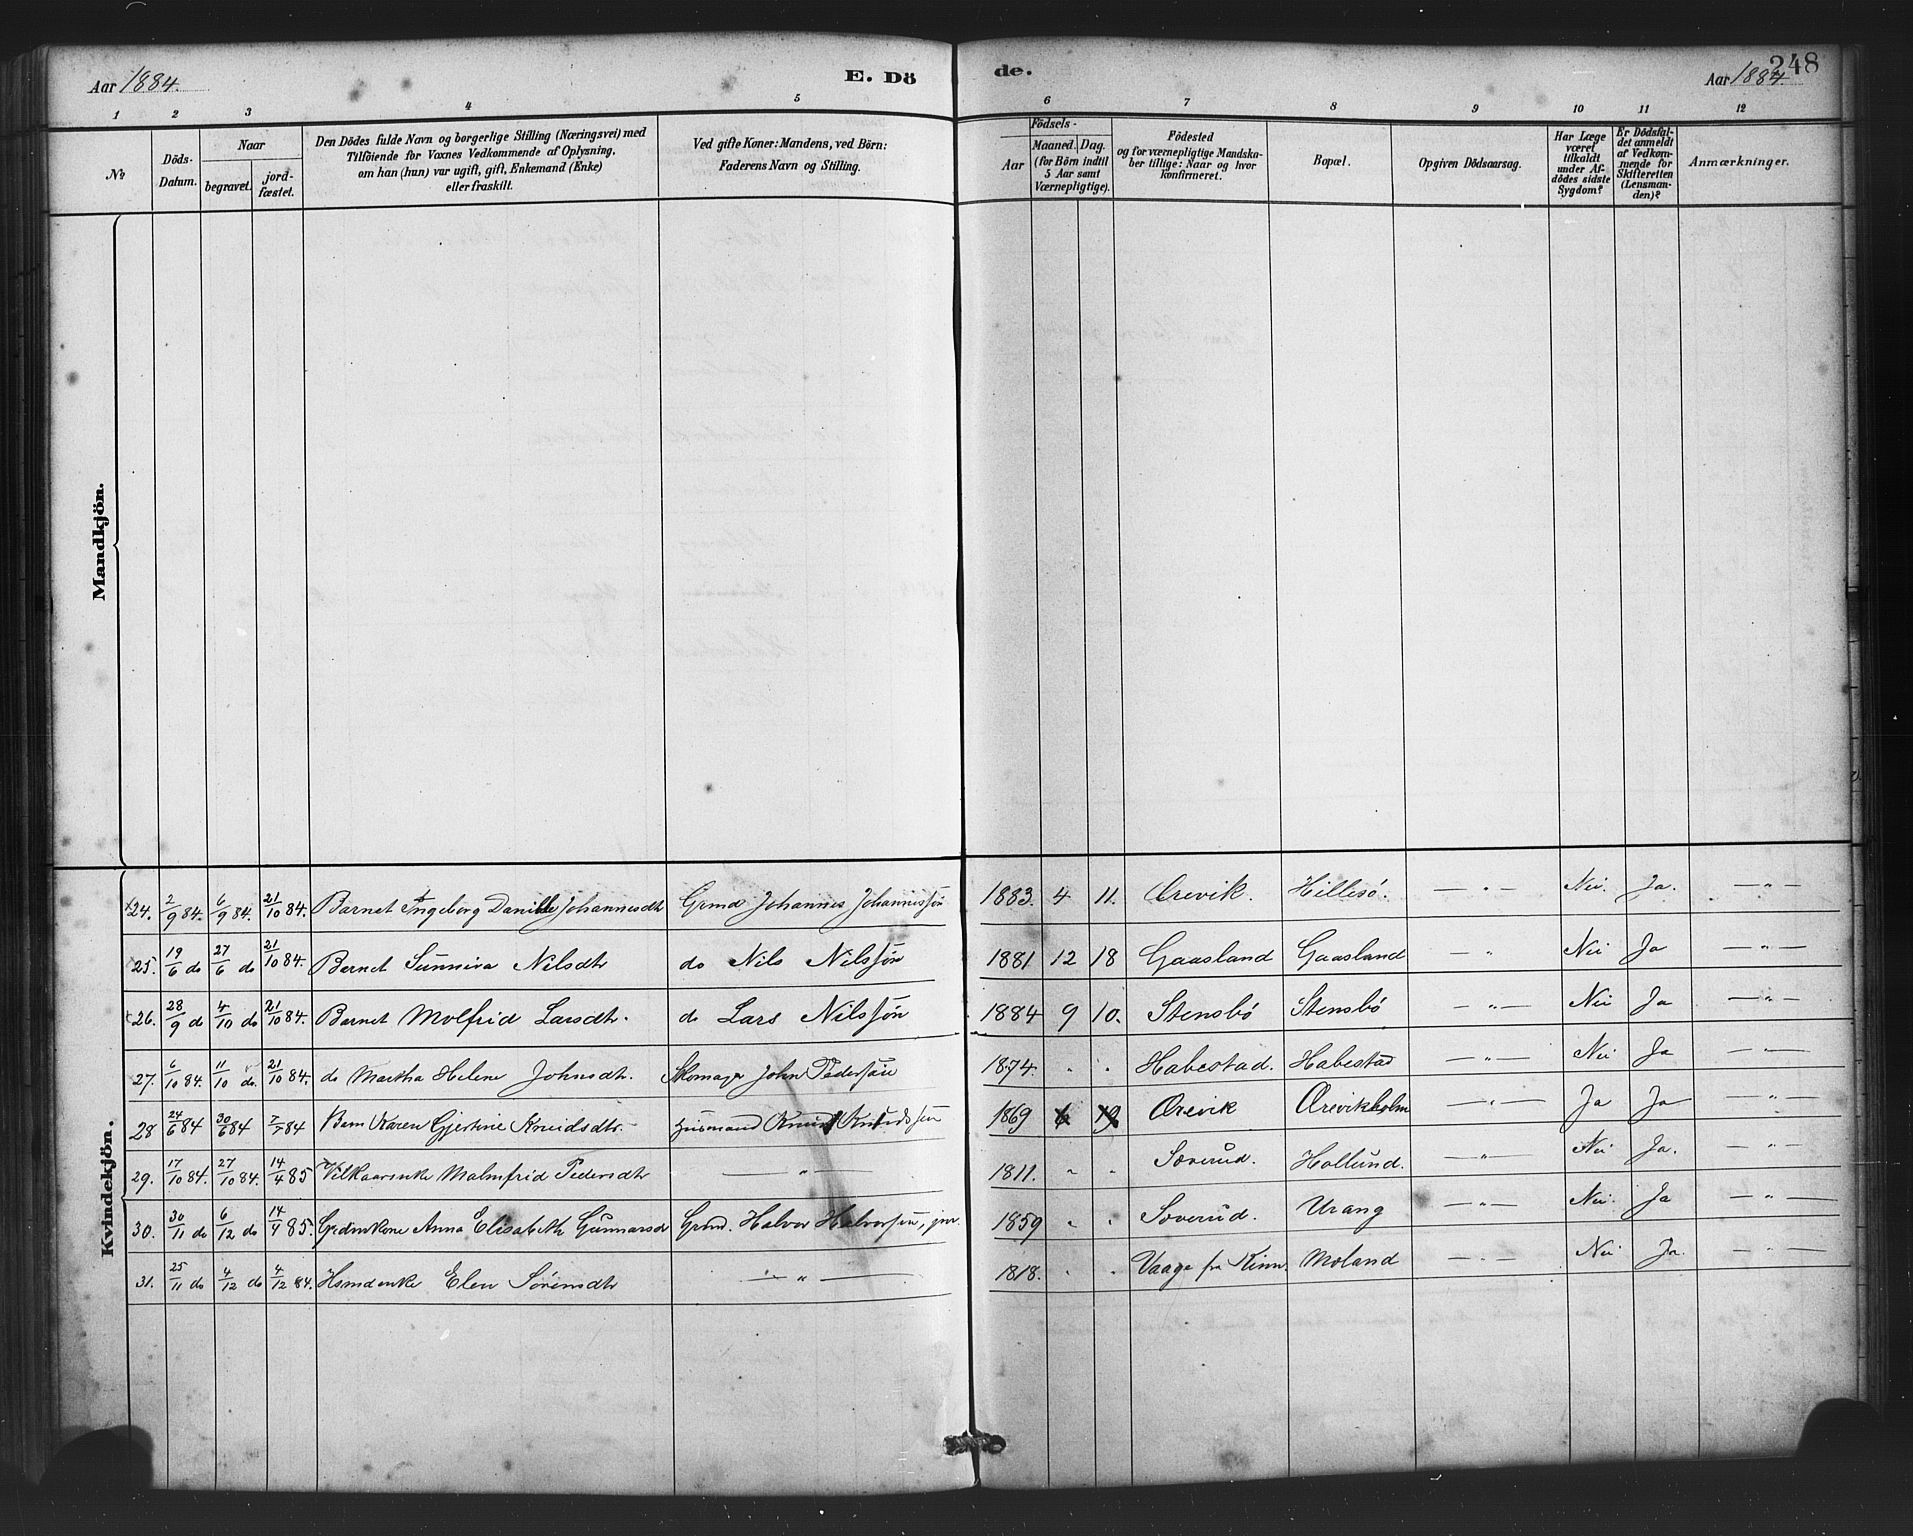 Aar 1884.
E. Dö
de.
Aar 1884.
248
1 2 3 4 5 6 7 8 9 10 11 12
№
Döds-Datum.
Naar
begravet.
jord-fæstet.
Den Dödes fulde Navn og borgerlige Stilling (Næringsvei) med
Tilföiende for Voxnes Vedkommende af Oplysning,
om han (hun) var ugift, gift, Enkemand (Enke)
eller fraskilt.
Ved gifte Koner: Mandens, ved Börn:
Faderens Navn og Stilling.
Födsels-
Aar
Maaned. Dag.
(for Börn indtil
5 Aar samt
Værnepligtige).
Födested
og for værnepligtige Mandska-
ber tillige: Naar og hvor
konfirmeret.
Bopæl.
Opgiven Dödsaarsag.
Har Læge
været
tilkaldt
under Af-
dödes sidste
Sygdom?
Er Dödsfal-
det anmeldt
af Vedkom-
mende for
Skifteretten
(Lensman-
den)?
Anmærkninger.
Mandkjön.
Kvindekjön.
24. 2/9 84. 6/9 84. 21/10 84. Barnet Ingeborg Danielle Johannesdtr Grmd Johannes Johannissön 1883. 4 11. Ørevik. Hillesö. — " — Nei. Ja. — " —
25. 19/6 do 27/6 do 21/10 84. Barnet Sunniva Nilsdtr do Nils Nilssön 1881 12 18 Gaasland Gaasland — " Nei Ja — " —
26. 28/9 do 4/10 do 21/10 84. Barnet Molfrid Larsdtr. do Lars Nilssön 1884 9 10. Stensbö Stensbö — " — Nei Ja — " —
27. 6/10 84. 11/10 do. 21/10 84. do Martha Helene Johnsdtr. Skomager John Pedersön 1874. " " Habestad. Habestad — " — Nei Ja — " —
28 24/6 84 30/6 84 7/7 84 Barn Karen Gjertine Knudsdtr. Husmand Knud Knudssön 1869 6 19 Ørevik Ørevikholm — " — Ja Ja — " —
29. 17/10 84. 27/10 84. 14/4 85 Vilkaarsenke Malmfrid Pedersdtr — " — 1811. " " Soverud. Hollund. — " — Nei Ja. — " —
30. 30/11 do 6/12 do 14/4 85. Grdmkone Anna Elisabeth Gunnarsd Grmd. Halvor Halvorsen, jnr. 1859 " " Soverud. Urang — " — Nei. Ja — " —
31. 25/11 do 4/12 do 4/12 84. Hsmdenke Elen Sörensdtr — " — 1818. " " Vaage fra Kinn Moland — " — Nei Ja. — " —